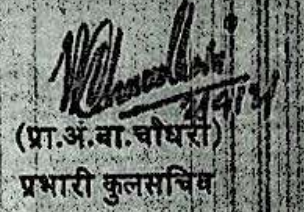 (प्रा.अ.बा.चौधरी)
प्रभारी कुलसचिव